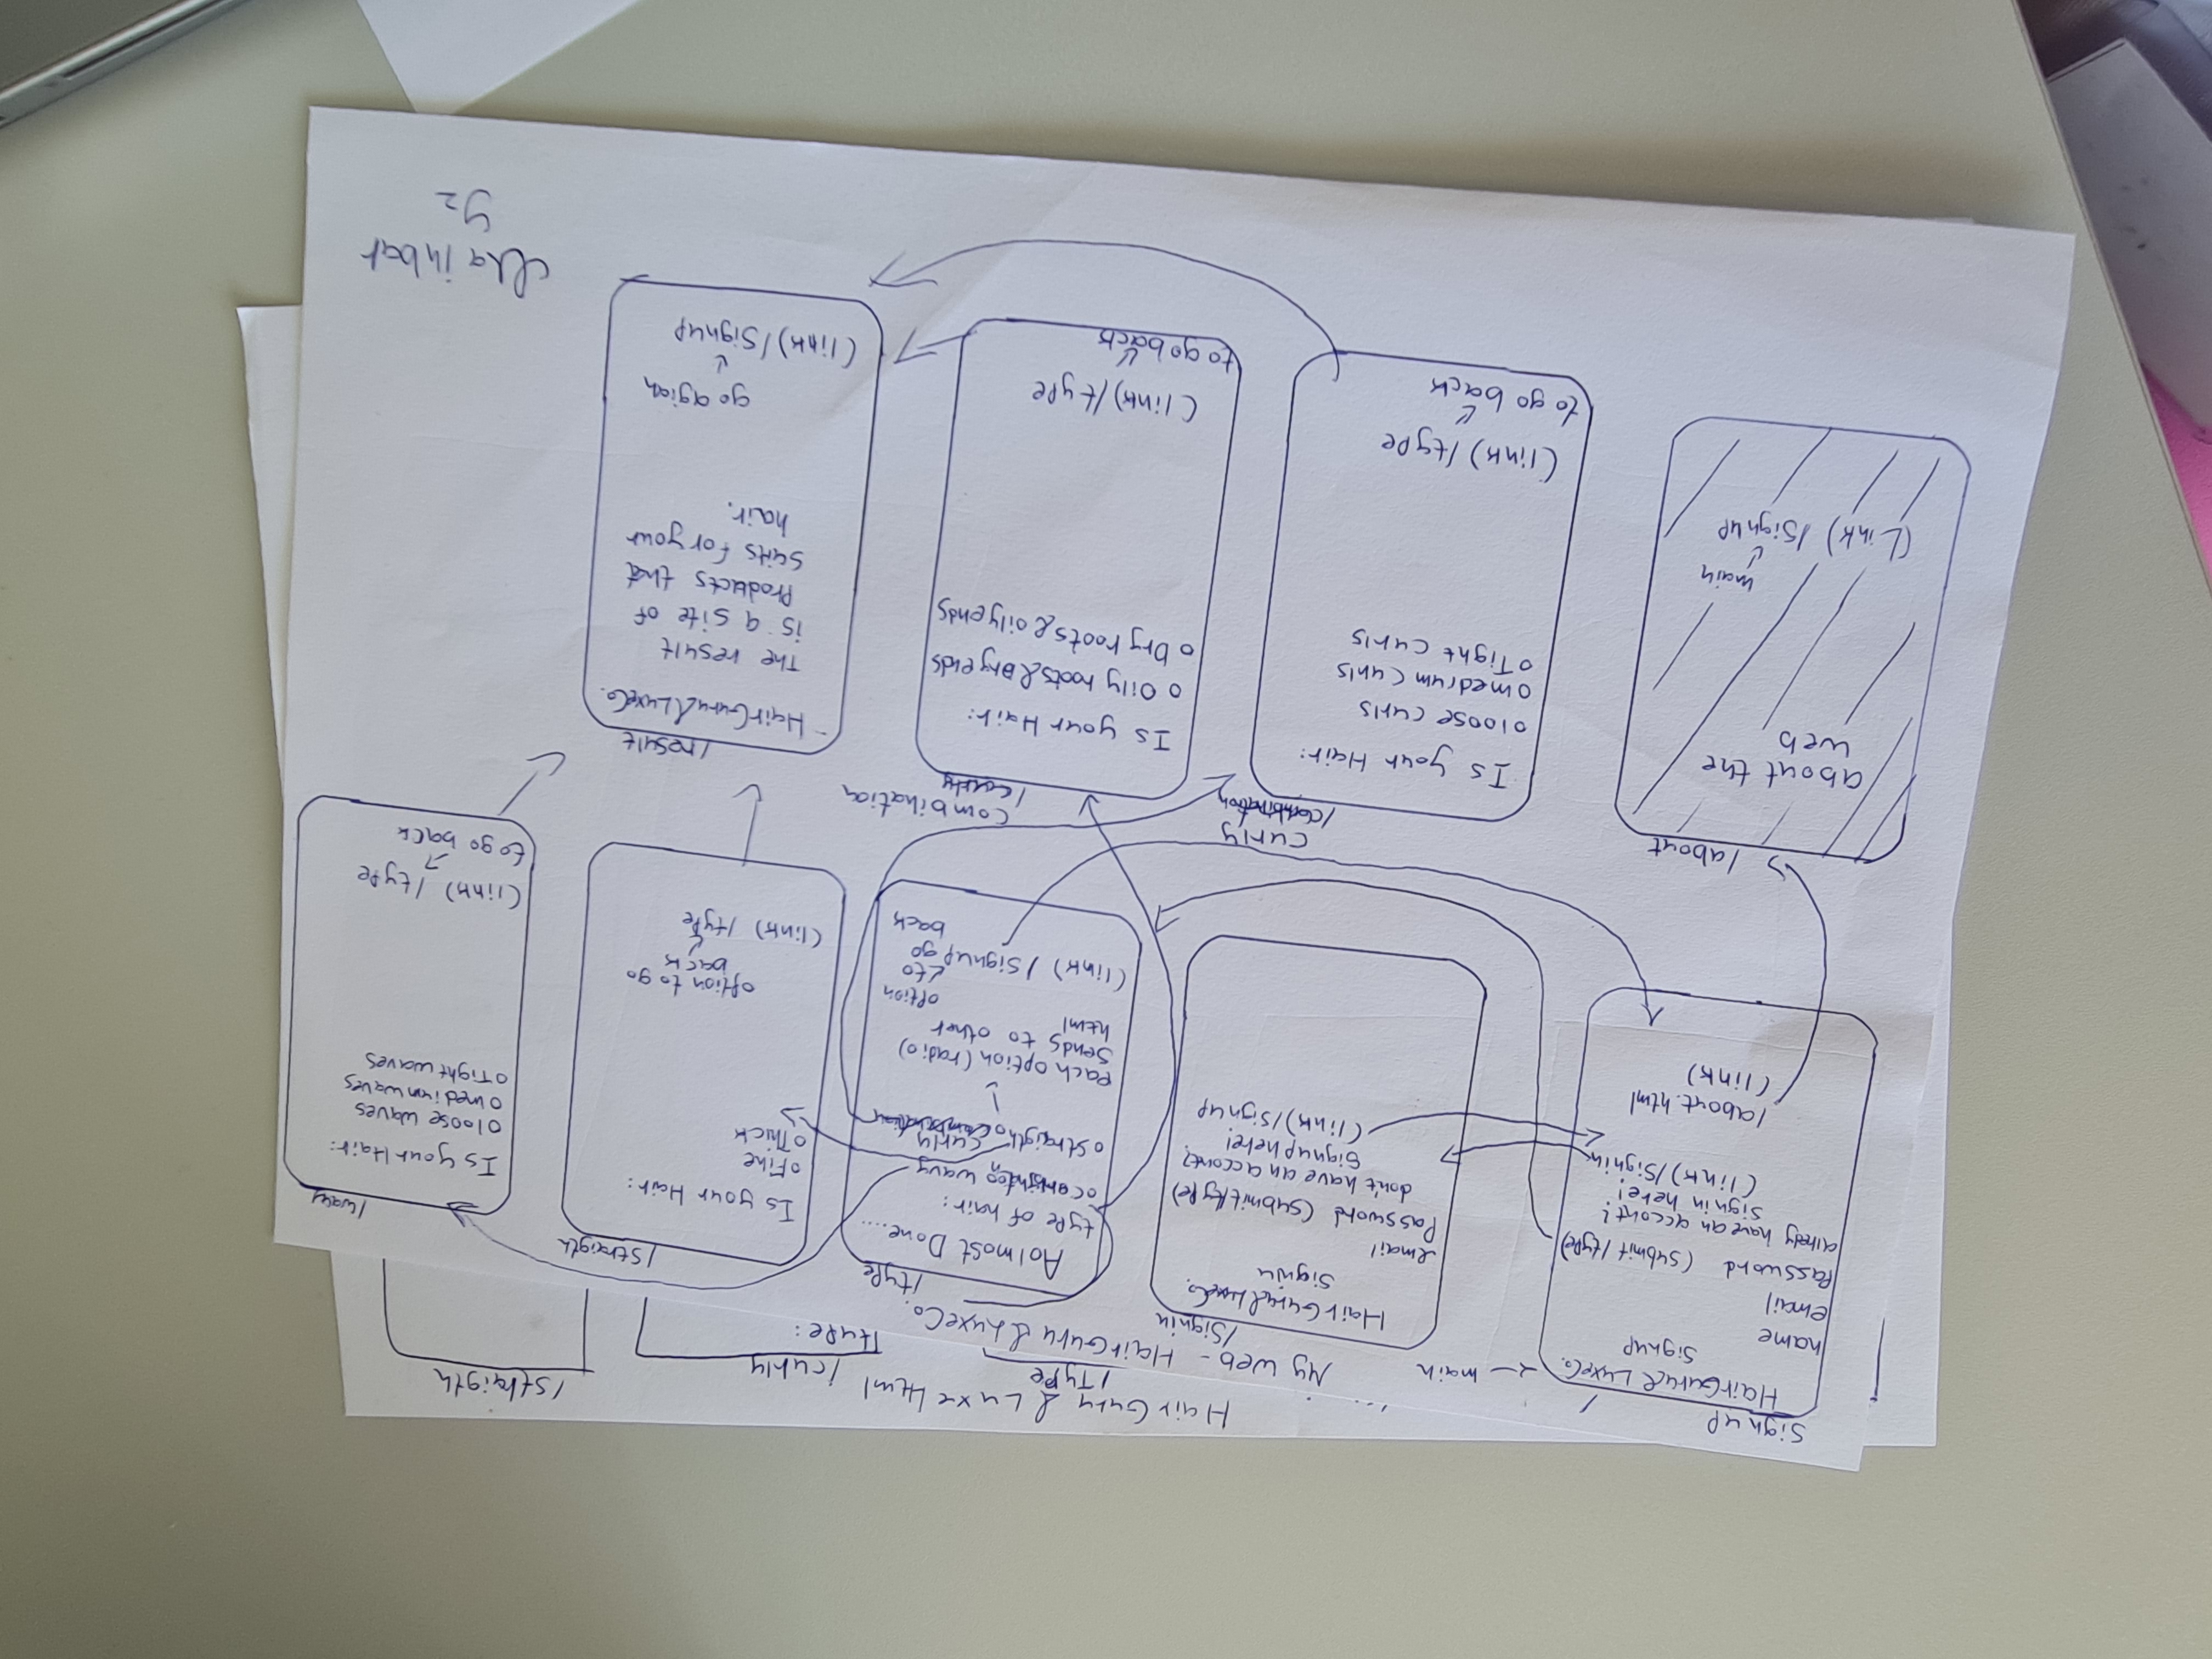 Hair Guru & Luxe Html
/Type
/curly
/straigth
Type:
My web - HairGuru & LuxeCo.
Signup
/
← main
HairGuru & LuxeCo.
Signup
name
email
Password (submit /type)
have an account?
Sign in here!
(link) /Signin
/about.html
(link)
/Signin
HairGuru & LuxeCo.
Signin
email
Password (submit /type)
don't have an account?
Signup here!
(link) /Signup
/type
Aolmost Done....
type of hair:
o wavy
o straigth o curly
each option (radio)
Sends to other
html
(link) /Signup
option
to
go
back
/straigth
Is your Hair:
o Fine
o Thick
option to go
back
(link) /type
/wavy
Is your Hair:
o loose waves
o medium waves
o Tight waves
(link) /type
to go back
/about
about the
web
main
(Link) /Signup
curly
/combination
Is your Hair:
o loose curls
o medium curls
o Tight curls
(link) /type
to go back
combination
/curly
Is your Hair:
o Oily roots & Dry ends
o Dry roots & oily ends
(link) /type
to go back
/result
- HairGuru & LuxeCo.
The result
is a site of
Products that
suits for your
hair.
go agian
(link) /Signup
inbar
y2